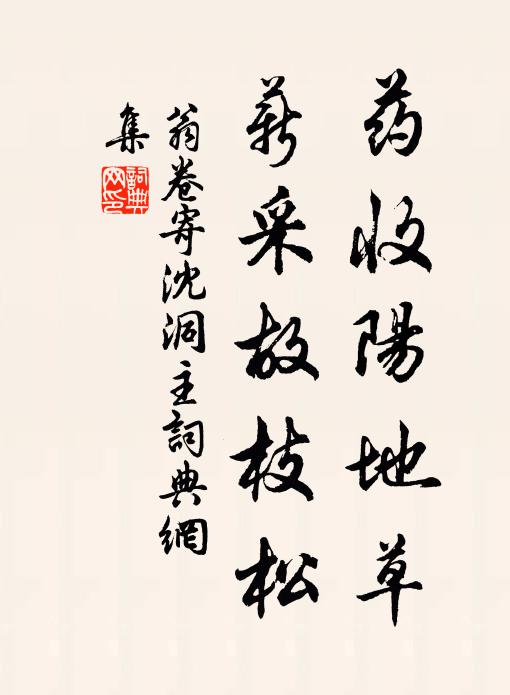 药收陽地草
薪采故枝松
翁卷寄沈洞主詞典網
集
詞典
网印